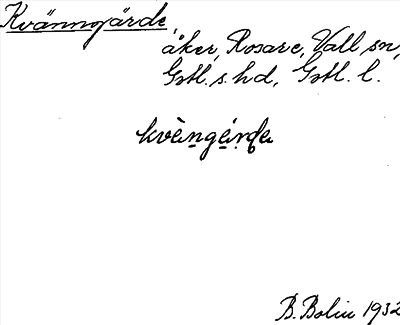 Kvänngärde,
åker, Rosare, Vall sn,
Gotl. s. hd, Gotl. l.
kvèngárda
B. Bolin 1932